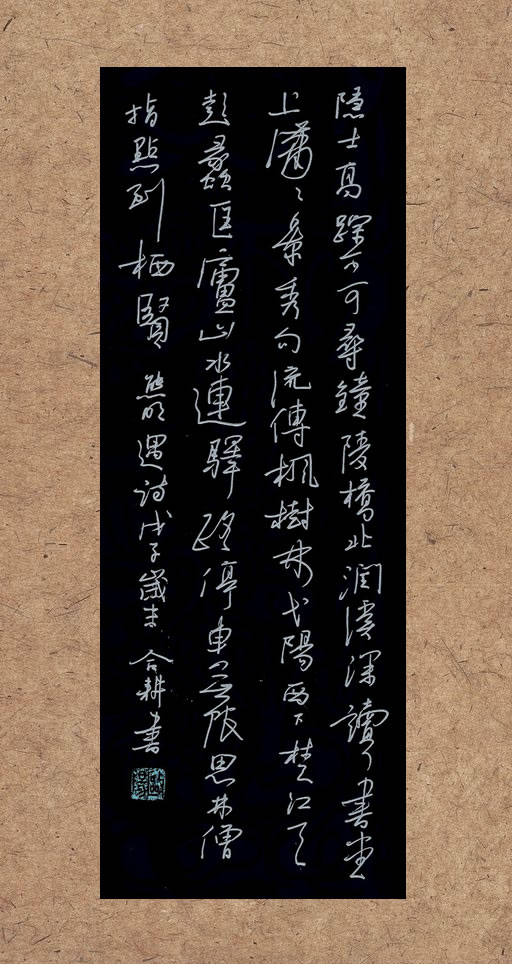 隱士高蹤不可尋鐘陵橋北澗溪深讀書堂
上瀟々景秀句流傳楓樹林弋陽西下楚江天
彭蠡匡廬山水連驛路停車無限思林僧
指點到栖賢 熊明遇詩戊子歲末 合耕書